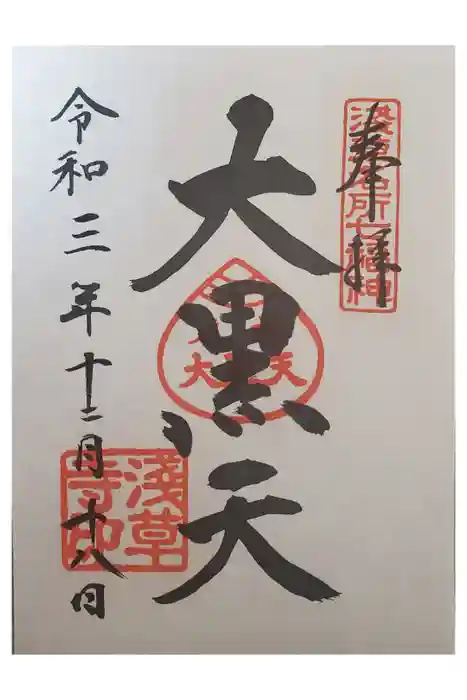 奉拝
浅草名所七福神
大黒天
大黒天
令和三年十二月十八日
浅草寺印